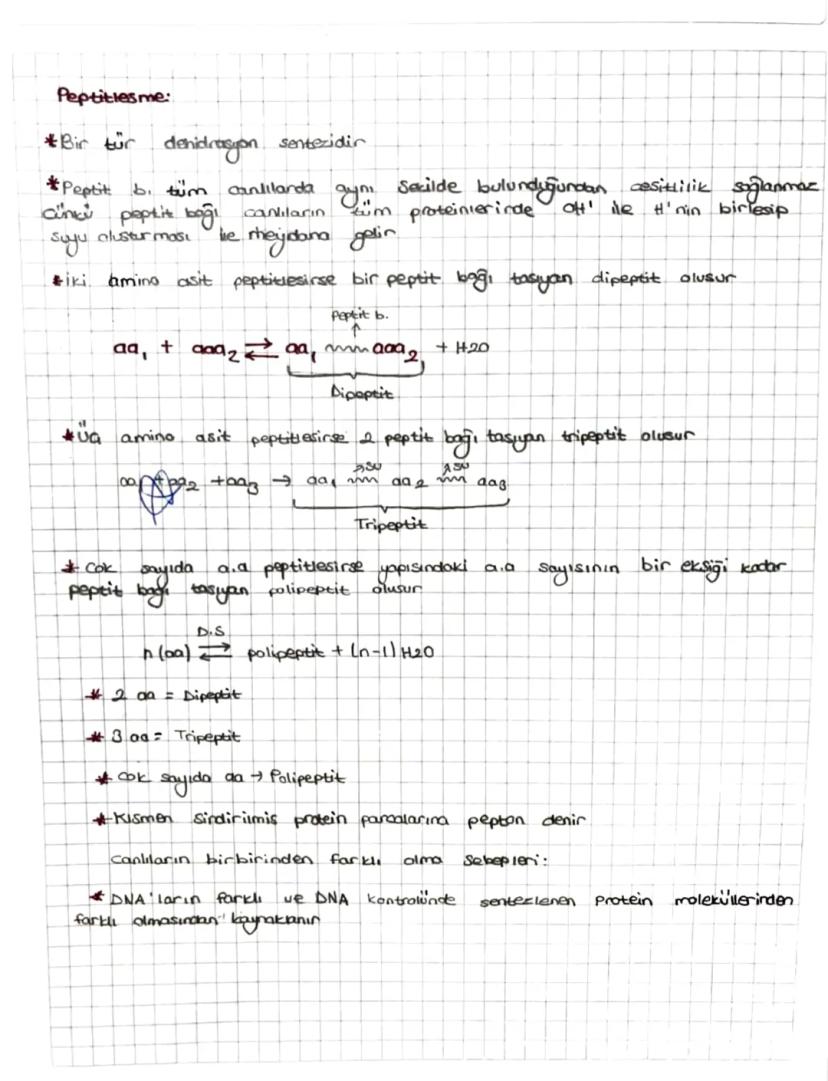 Peptitlesme:
*Bir tür dehidrasyon sentezidir
*Peptit b. tüm canlılarda aynı sekilde bulunduğundan cesitlilik sağlanmaz
cünkü peptit bağı canlıların tüm proteinlerinde OH' ile H'nin birlesip
suyu olusturması ile meydana gelir
*iki amino asit peptitlesirse bir peptit bağı tasıyan dipeptit olusur
Peptit b.
↑
aa₁ + aaa₂ ⇄ aa₁ aaa₂ + H2O
Dipeptit
*Üç amino asit peptitlesirse 2 peptit bağı tasıyan tripeptit olusur
aa₁ + aa₂ + aa₃ → aa₁ aa₂ aa₃
Tripeptit
* Cok sayıda a.a peptitlesirse yapısındaki a.a sayısının bir eksiği kadar
peptit bağı tasıyan polipeptit olusur
D.S
n (aa) ⇄ polipeptit + (n-1) H2O
* 2 aa = Dipeptit
* 3 aa = Tripeptit
* cok sayıda aa → Polipeptit
*Kısmen sindirilmis protein parcalarına pepton denir
Canlıların birbirinden farklı olma sebepleri:
* DNA'ların farklı ve DNA kontrolünde sentezlenen Protein moleküllerinden
farklı olmasından kaynaklanır